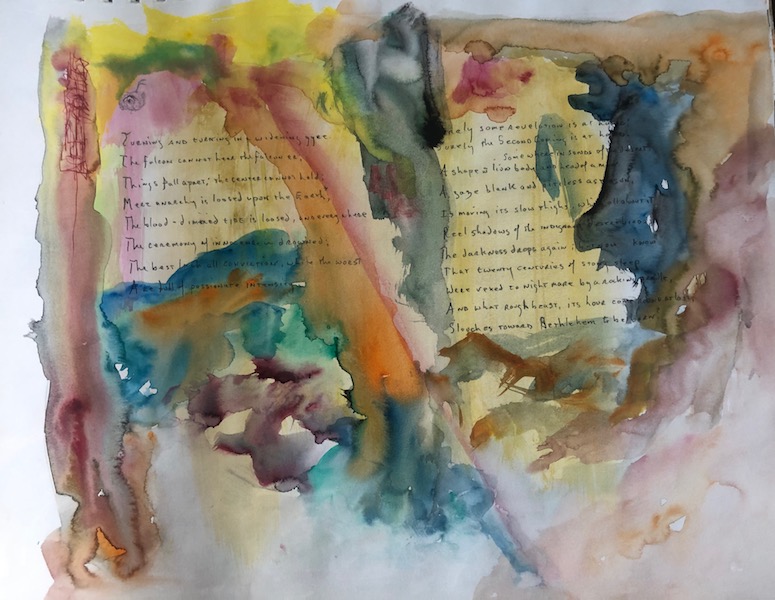 Turning and turning in a widening gyre
The falcon cannot hear the falcon er;
Things fall apart; the center cannot hold;
Meer anarchy is loosed upon the Earth,
The blood-dimmed tide is loosed, and everywhere
The ceremony of innocence is drowned;
The best lack all conviction, while the worst
Are full of passionate intensity
Surely some revelution is at
Surely the Second Coming is at
Somewhere in sands of
A shape a lion body and head of a
A gaze blank and pitiless as
Is moving its slow thighs, while all about it
Reel shadows of the indignant
The darkness drops again know
That twenty centuries of stony sleep
Were vexed to nightmare by a rocking
And what rough beast, its hour come
Slouches toward Bethlehem to be born